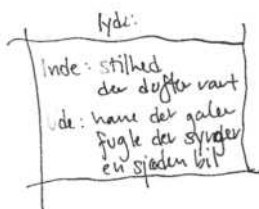 lyde:
Inde: stilhed
der dufter rart
ude: hane der galer
fugle der synger
en sjælden bil